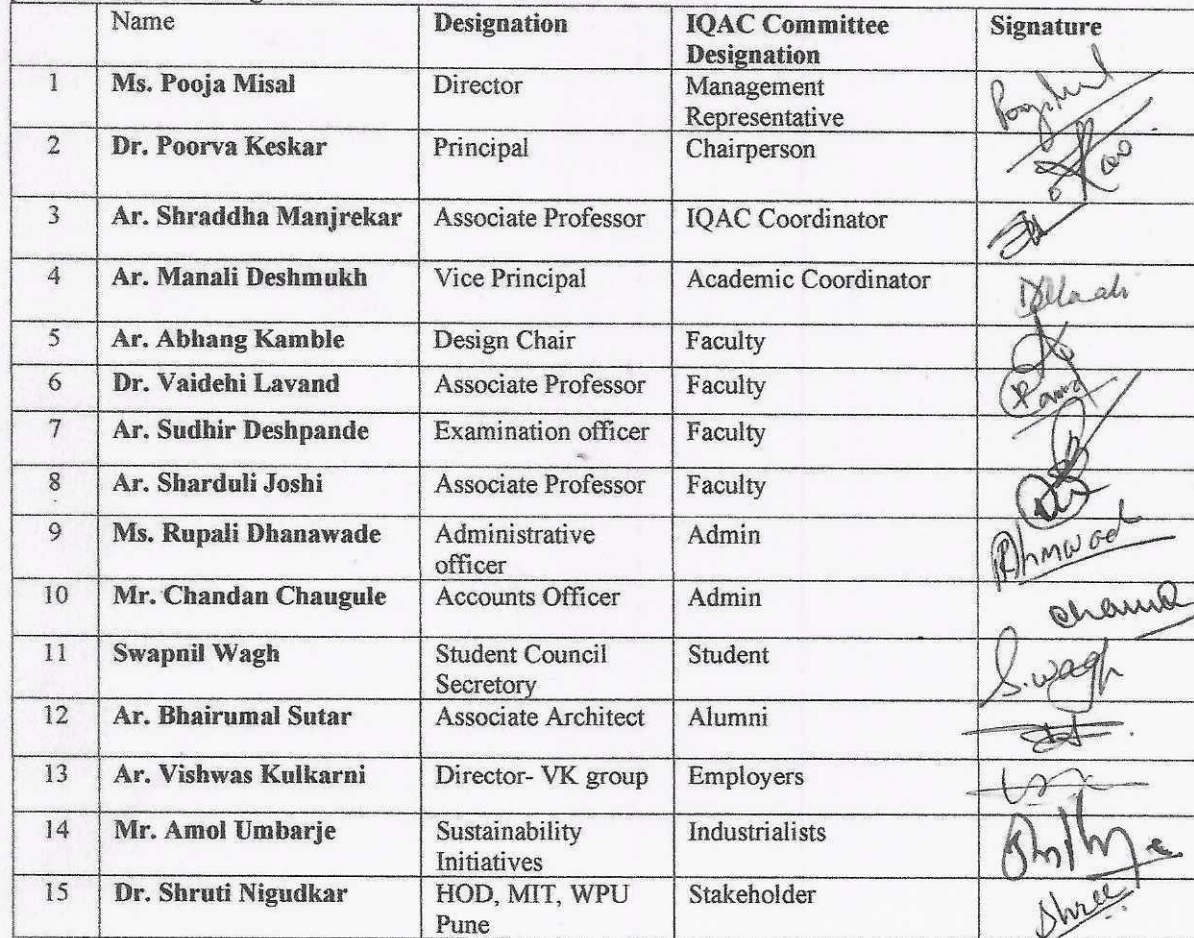 Name Designation IQAC Committee Designation Signature
1 Ms. Pooja Misal Director Management Representative
2 Dr. Poorva Keskar Principal Chairperson
3 Ar. Shraddha Manjrekar Associate Professor IQAC Coordinator
4 Ar. Manali Deshmukh Vice Principal Academic Coordinator
5 Ar. Abhang Kamble Design Chair Faculty
6 Dr. Vaidehi Lavand Associate Professor Faculty
7 Ar. Sudhir Deshpande Examination officer Faculty
8 Ar. Sharduli Joshi Associate Professor Faculty
9 Ms. Rupali Dhanawade Administrative officer Admin
10 Mr. Chandan Chaugule Accounts Officer Admin
11 Swapnil Wagh Student Council Secretory Student S.wagh
12 Ar. Bhairumal Sutar Associate Architect Alumni
13 Ar. Vishwas Kulkarni Director- VK group Employers
14 Mr. Amol Umbarje Sustainability Initiatives Industrialists
15 Dr. Shruti Nigudkar HOD, MIT, WPU Pune Stakeholder Shree